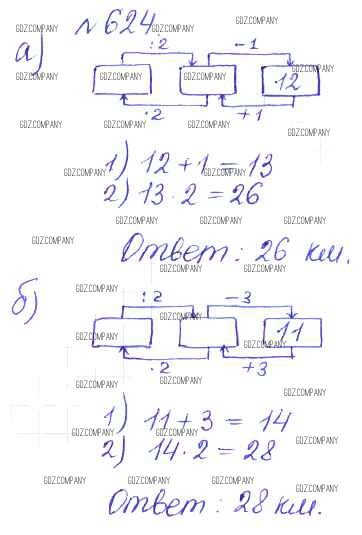 № 624.
а)
:2 −1
12
·2 +1
1) 12 + 1 = 13
2) 13 · 2 = 26
Ответ: 26 км.
б)
:2 −3
11
·2 +3
1) 11 + 3 = 14
2) 14 · 2 = 28
Ответ: 28 км.
GDZ.COMPANY